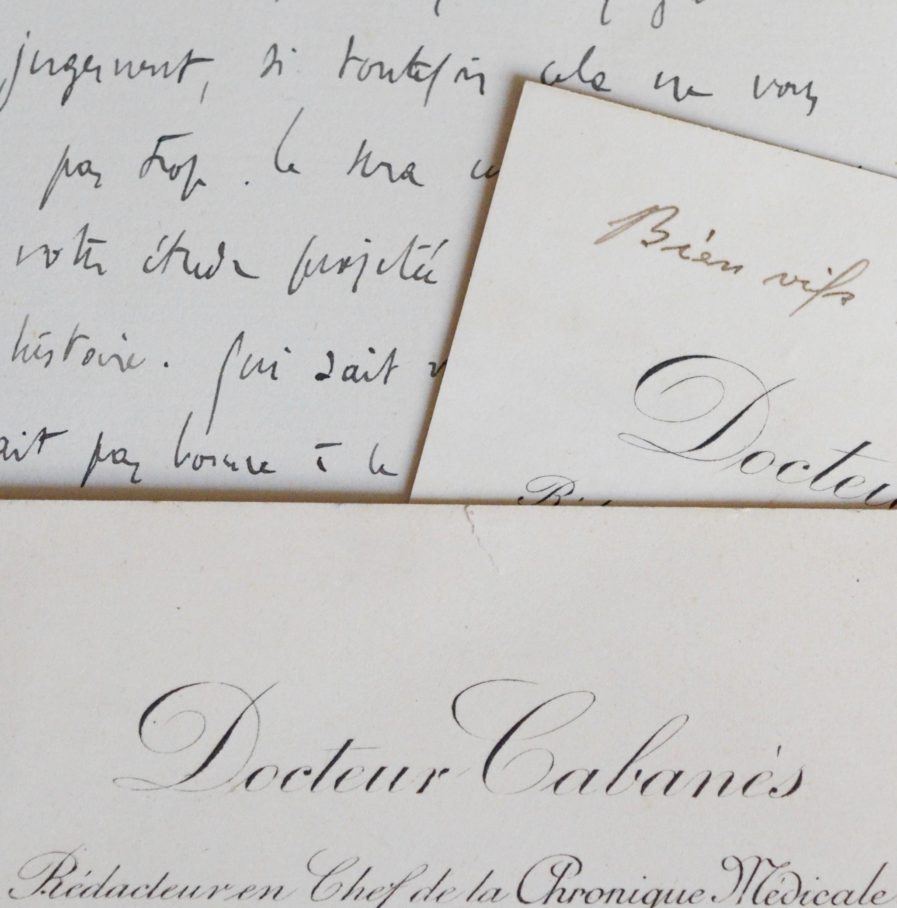 jugement, si toutefois cela ne vous
pas trop. Ce sera
votre étude projetée
histoire. Qui sait
ait pas bonne à le
Bien vifs
Docteu
Docteur Cabanès
Rédacteur en Chef de la Chronique Médicale